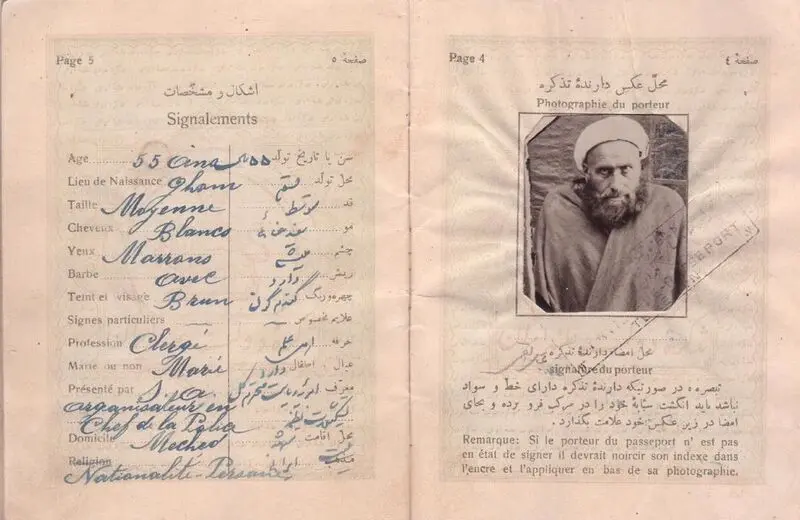 Page 5 صفحهٔ ٥
اشکال و مشخّصات
Signalements
Age 55 ans ٥٥ سن یا تاریخ تولد
Lieu de Naissance Ghom قم محل تولد
Taille Moyenne متوسط قد
Cheveux Blancs مو
Yeux Marrons میشی چشم
Barbe avec دارد ریش
Teint et visage Brun گندم گون چهره و رنگ
Signes particuliers علایم مخصوص
Profession Clergé اهل علم حرفه
Marie ou non Marié دارد عیال
Présenté par S. A. معرف
organisateur en
Chef de la Police
Domicile Meched مشهد محل اقامت
Religion
Nationalité Persane ایران
Page 4 صفحهٔ ٤
محلّ عکس دارندهٔ تذکره
Photographie du porteur
PASSEPORT
محلّ امضاء دارندهٔ تذکره
signature du porteur
تبصره ـ در صورتیکه دارندهٔ تذکره دارای خط و سواد
نباشد باید انگشت سبّابهٔ خود را در مرکب فرو برده و بجای
امضا در زیر عکس خود علامت بگذارد.
Remarque: Si le porteur du passeport n' est pas
en état de signer il devrait noircir son indexe dans
l'encre et l'appliquer en bas de sa photographie.